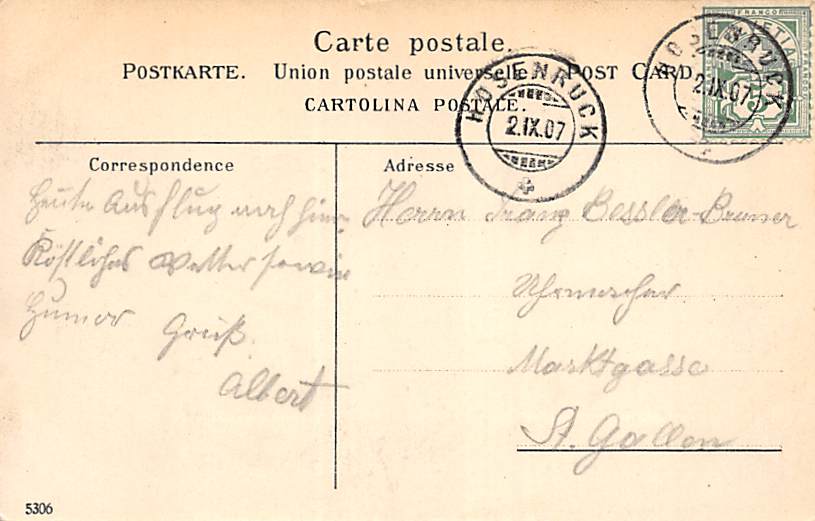 Carte postale.
POSTKARTE. Union postale universelle. POST CARD
CARTOLINA POSTALE.
HOSENRUCK
2.IX.07
HOSENRUCK
2.IX.07
FRANCO
HELVETIA
5
Correspondence
Heute Ausflug nach hier.
Köstliches Wetter sowie
Humor Gruß.
Albert
Adresse
Herrn Franz Bessler-Brunner
Uhrmacher
Marktgasse
St. Gallen
5306